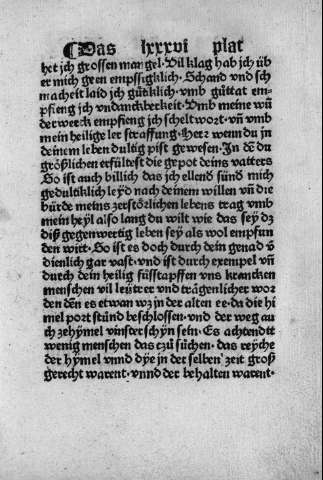 ¶Das lxxxvi plat
het jch grossen mangel · Vil klag hab jch üb
er mich geen empssigklich · Schand vnd sch
macheit laid jch gütklich · vmb güttat em-
pfieng jch vndanckberkeit · Vmb meine wū
derwerck empfieng jch scheltwort · vn̄ vmb
mein heilige ler straffung · Herr wenn du jn
deinem leben dultig pist gewesen · In dē du
größlichen erfültest die gepot deins vatters
So ist auch billich das jch ellend sünd mich
gedultiklich leyd nach deinem willen vn̄ die
bürde meins zerstörlichen lebens trag vmb
mein heyl also lang du wilt wie das sey dz
diß gegenwertig leben sey als wol empfun
den wirt · So ist es doch durch dein genad v̄
dienlich gar vast · vnd ist durch exempel vn̄
durch dein heilig füsstapffen vns krancken
menschen vil leütrer vnd trägenlicher wor
den dēn es etwan wz jn der alten ee · da die hi
mel port stünd beschlossen · vnd der weg au
ch ze hymel vinster schyn sein · Es achtendtt
wenig menschen das czü süchen · das reyche
der hymel vnnd dye jn der selben zeit groß
gerecht warent · vnnd der behalten warent ·